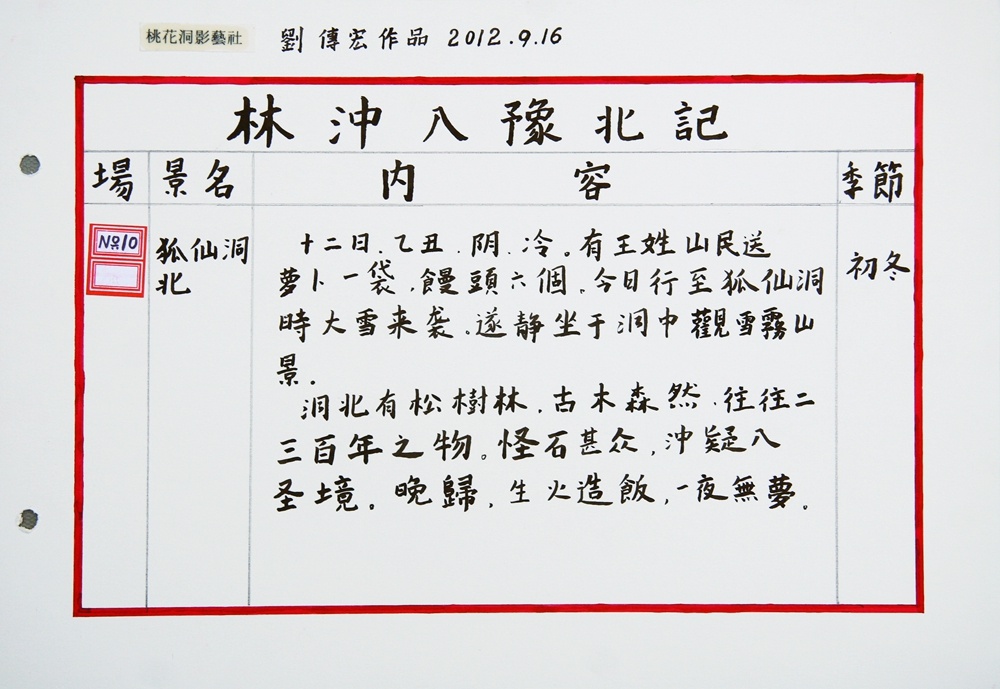 桃花洞影藝社 劉傳宏作品 2012.9.16
林沖入豫北記
場 景名 内容 季節
No10
狐仙洞
北
十二日.乙丑.阴.冷。有王姓山民送
萝卜一袋.饅頭六個.今日行至狐仙洞
時大雪来袭.遂静坐于洞中觀雪霧山
景.
洞北有松樹林.古木森然.往往二
三百年之物。怪石甚众,沖疑入
圣境。晚歸,生火造飯,一夜無夢。
初冬